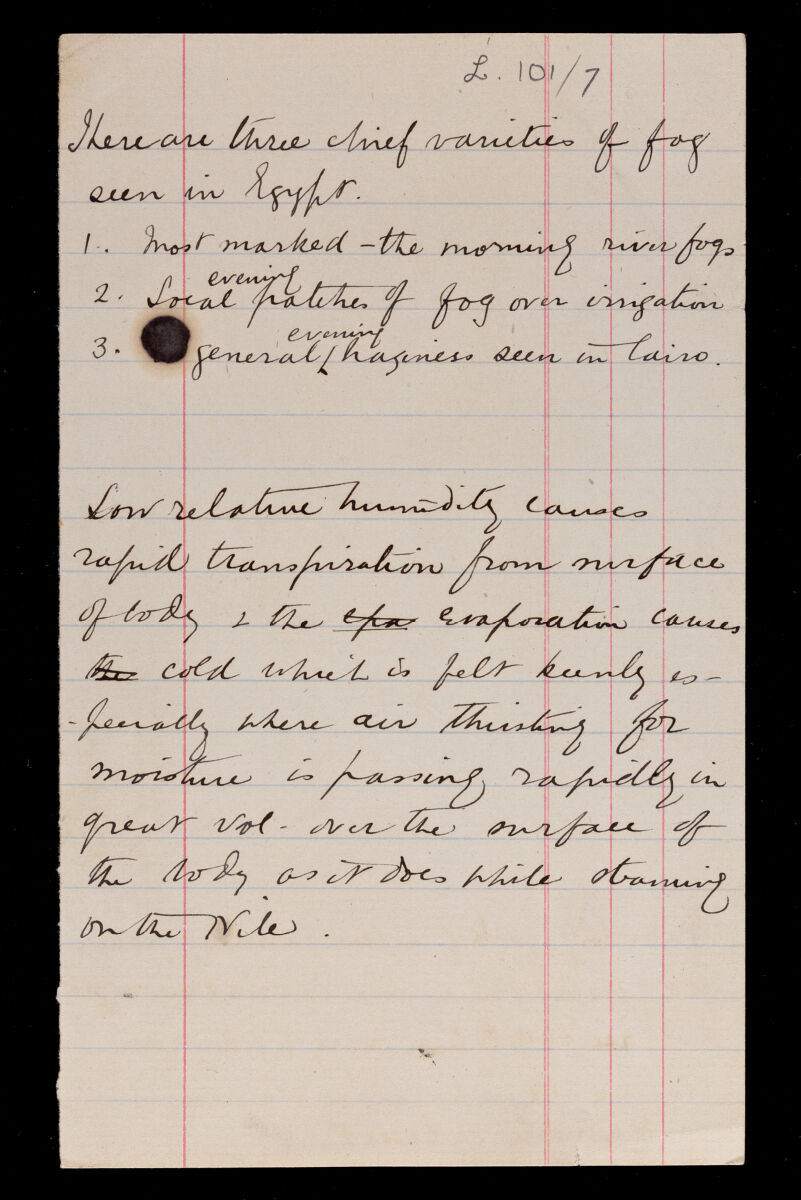 L. 101/7
There are three chief varieties of fog
seen in Egypt.
1. Most marked – the morning river fogs
evening
2. Local patches of fog over irrigation
evening
3. general haziness seen in Cairo.
Low relative humidity causes
rapid transpiration from surface
of body & the epa evaporation causes
the cold which is felt keenly es-
-pecially where air thirsting for
moisture is passing rapidly in
great vol. over the surface of
the body as it does while steaming
on the Nile.